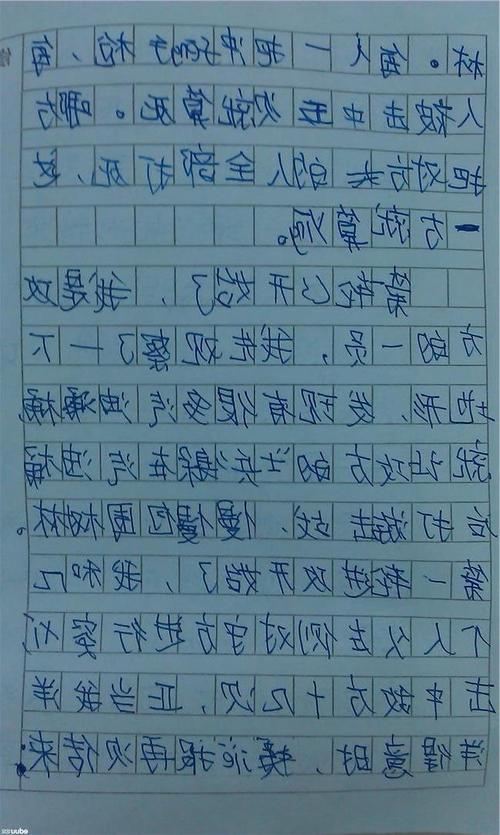 林。每人一把冲锋枪、每
人被击中五次就算死。哪方
把对方的人全部打死,这
一方就算赢。
第轮已开始了,我是攻
方的一员,我先观察了一下
地形,发现有很多汽油桶
就让攻方的士兵躲在汽油桶
后打游击战,慢慢包围树林。
第一轮进攻开始了,我和几
个人从左侧对守方进行
击中敌方十几次,正当我洋
洋得意时,报再次传来